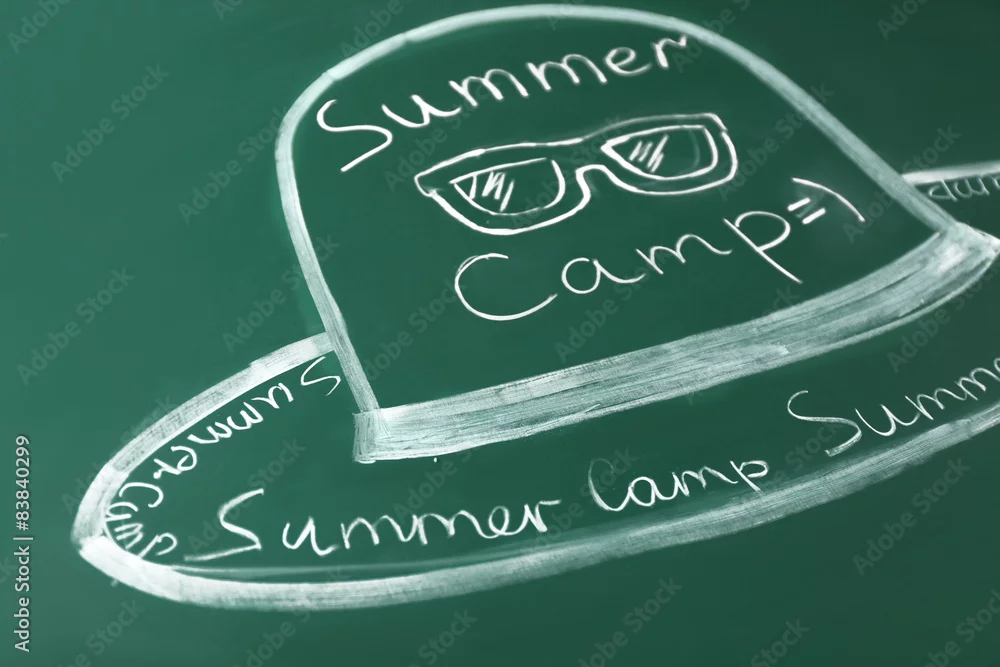 Summer
Camp=)
Summer Camp
Summer Camp Summ
Adobe Stock | #83840299